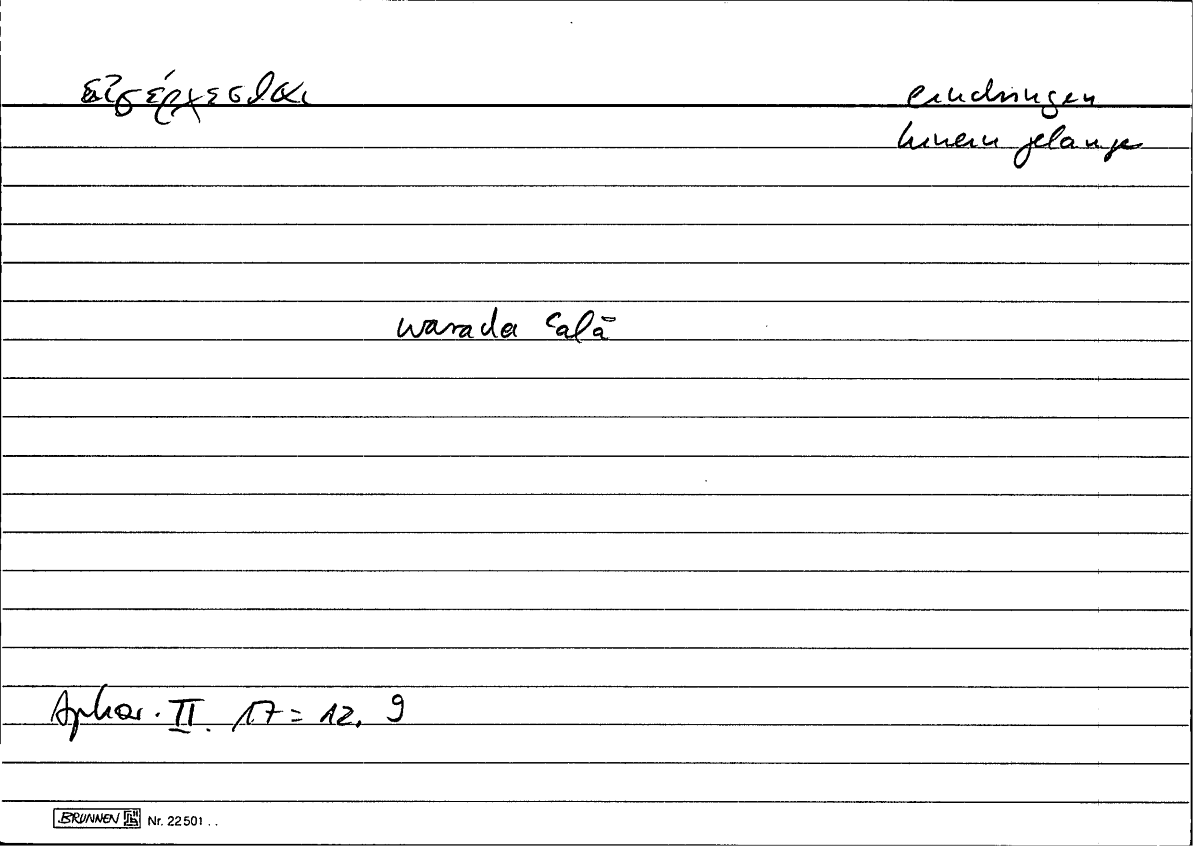 εἰσέρχεσθαι
eindringen
hinein gelange
warada ʿalā
Aphor. II. 17 = 12, 9
BRUNNEN Nr. 22501 . .